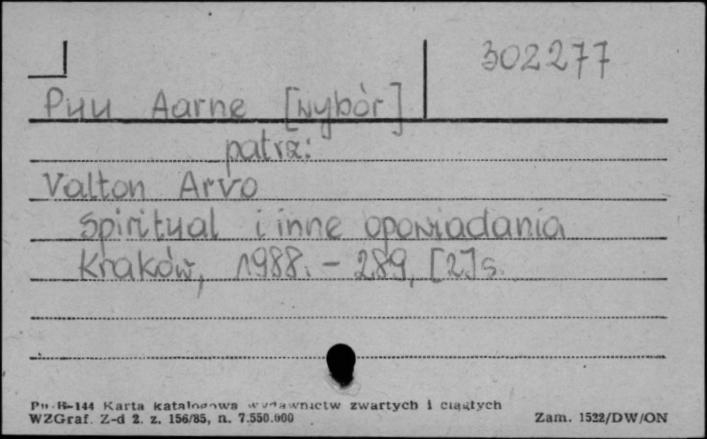 302277
Puu Aarne [wybór]
patrz:
Valton Arvo
Spiritual i inne opowiadania
Kraków, 1988. - 289, [2] s.
Pu-B-144 Karta katalogowa wydawnictw zwartych i ciągłych
WZGraf. Z-d 2. z. 156/85, n. 7.550.000
Zam. 1522/DW/ON